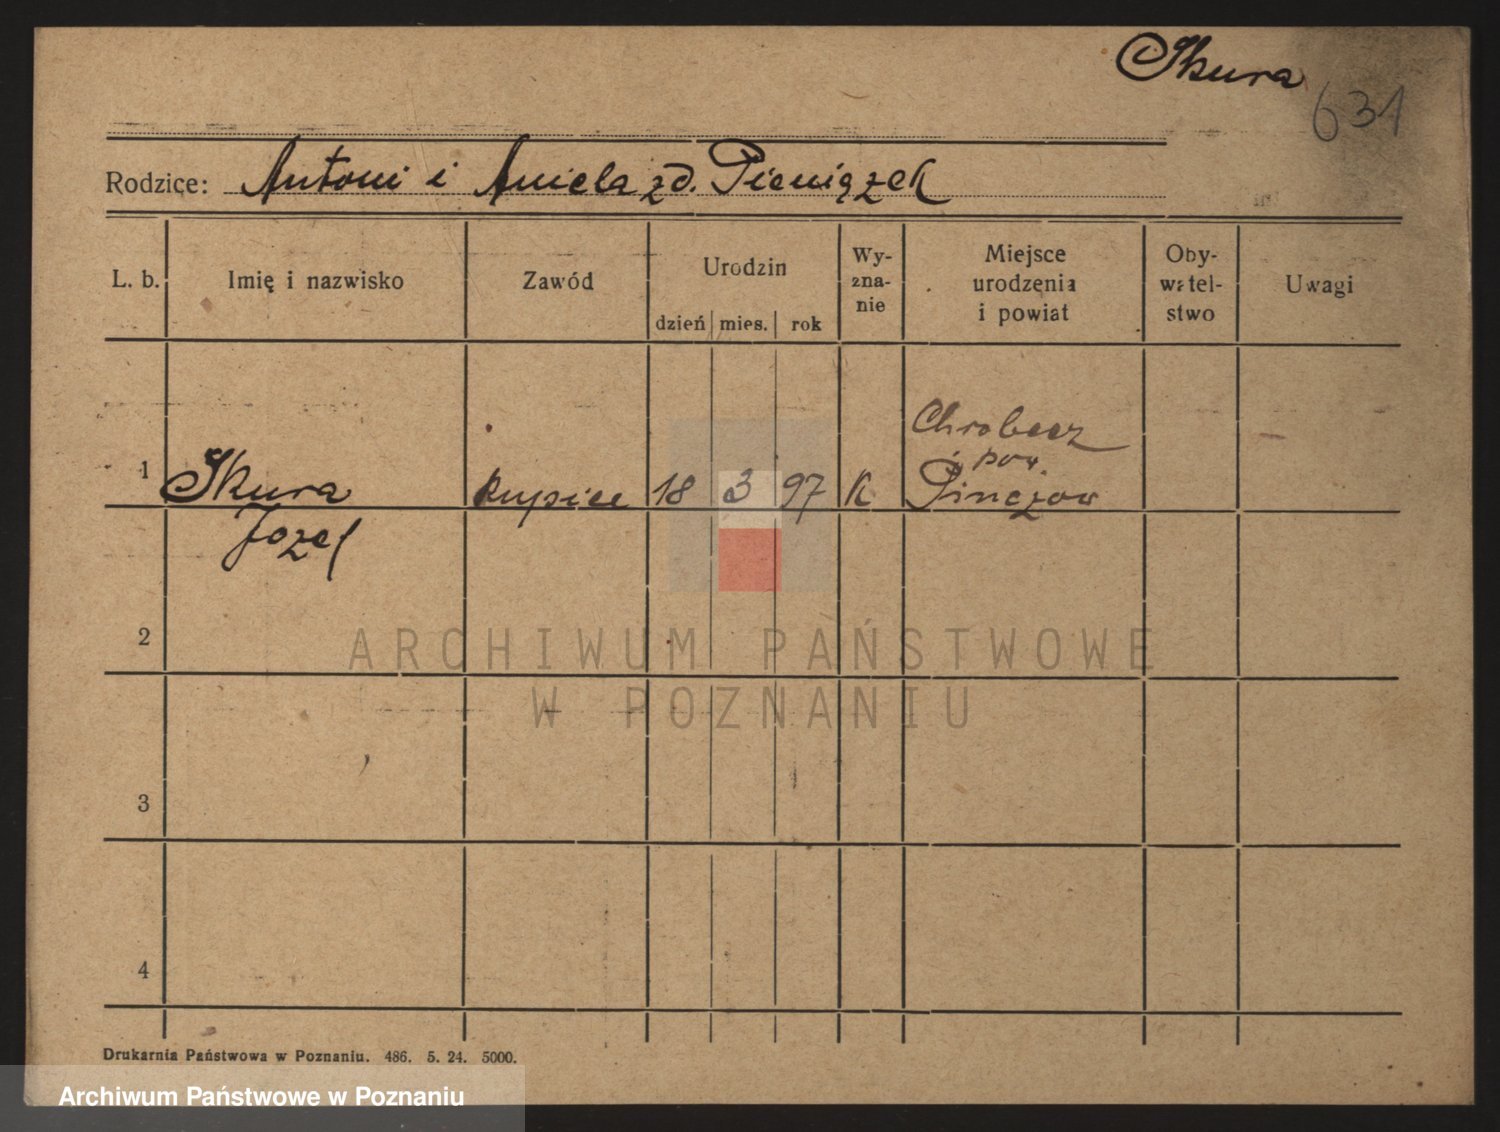 Skura
631
Rodzice: Antoni i Aniela zd. Pieniązek
L. b. Imię i nazwisko Zawód Urodzin dzień mies. rok Wy-zna-nie Miejsce urodzenia i powiat Oby-watel-stwo Uwagi
Chrobecz
pow.
1 Skura kupiec 18 3 97 K Pinczow
Jozef
2
ARCHIWUM PAŃSTWOWE
W POZNANIU
3
4
Drukarnia Państwowa w Poznaniu. 486. 5. 24. 5000.
Archiwum Państwowe w Poznaniu